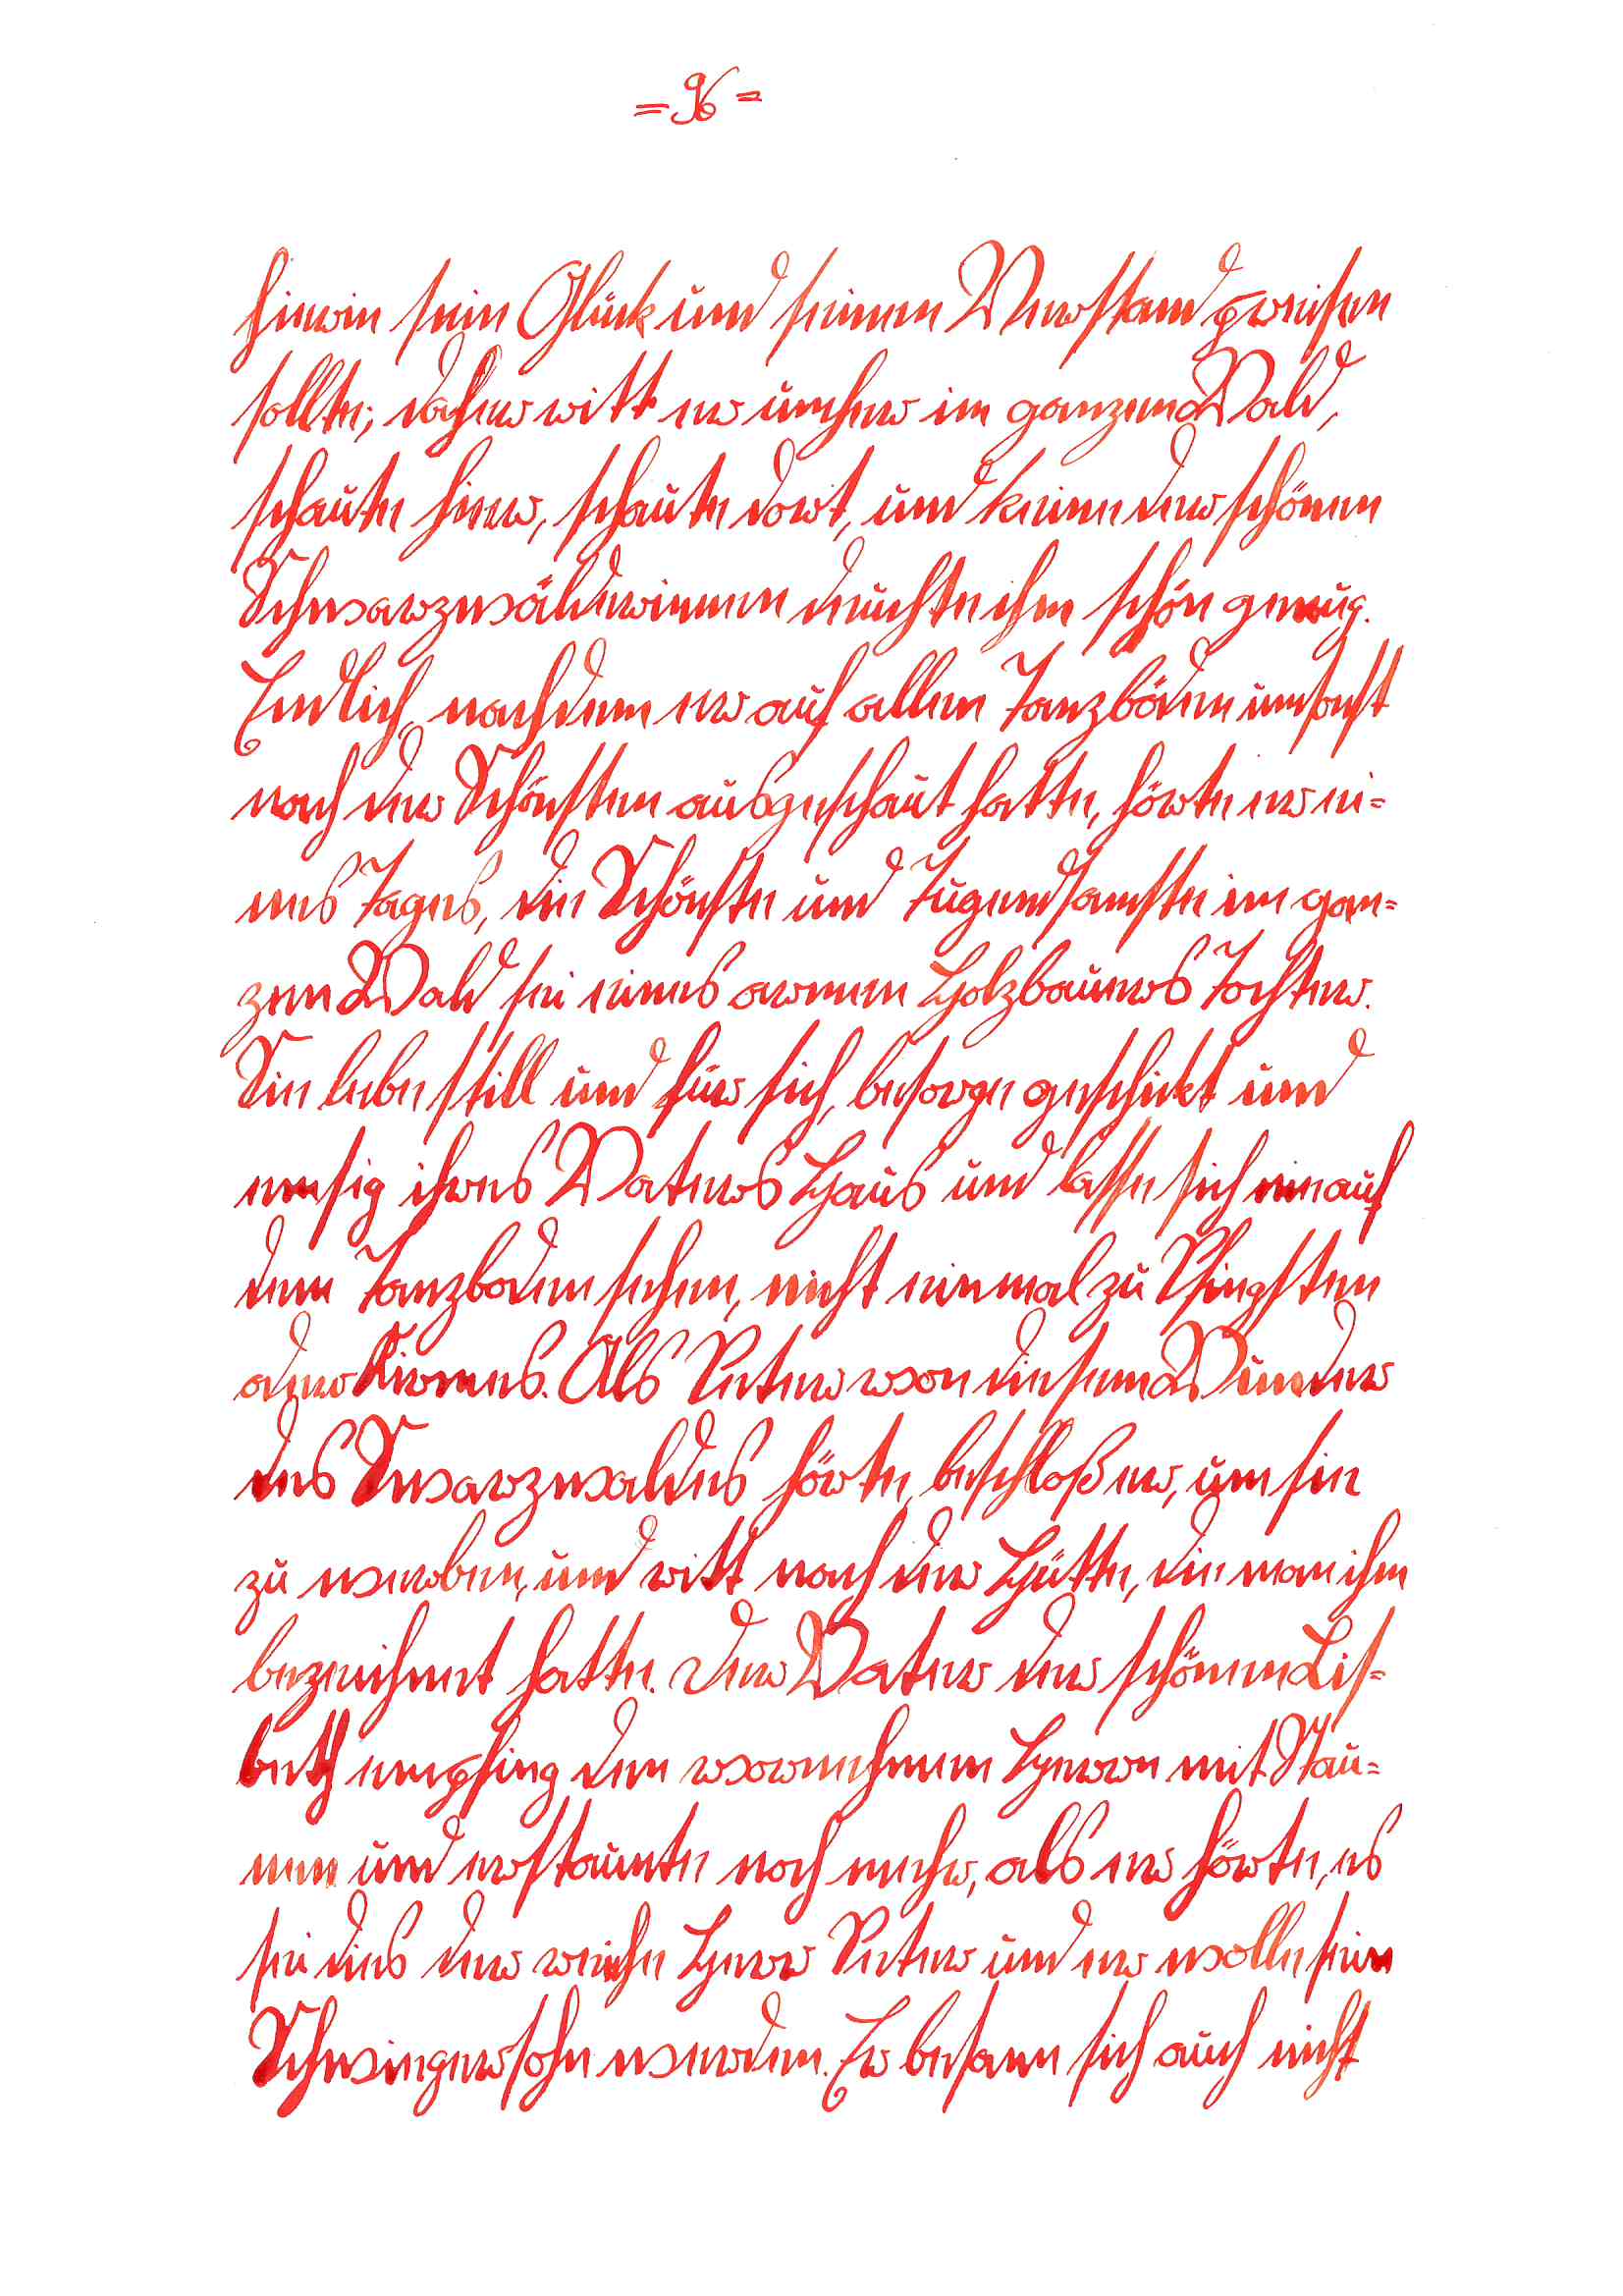 = 96 =
hierin sein Glück und seinen Verstand preisen
sollte; daher ritt er umher im ganzen Wald,
schaute hier, schaute dort, und keine der schönen
Schwarzwälderinnen deuchte ihm schön genug.
Endlich, nachdem er auf allen Tanzböden umsonst
nach der Schönsten ausgeschaut hatte, hörte er ei=
nes Tages, die Schönste und Tugendsamste im gan=
zen Wald sei eines armen Holzbauers Tochter.
Sie lebe still und für sich, besorge geschickt und
emsig ihres Vaters Haus und lasse sich nie auf
dem Tanzboden sehen, nicht einmal zu Pfingsten
oder Kirmes. Als Peter von diesem Wunder
des Swarzwaldes hörte, beschloß er, um sie
zu werben, und ritt nach der Hütte, die man ihm
bezeichnet hatte. Der Vater der schönen Lis=
beth empfing den vornehmen Herrn mit Stau=
nen und erstaunte noch mehr, als er hörte, es
sei dies der reiche Herr Peter und er wolle sein
Schwiegersohn werden. Er besann sich auch nicht